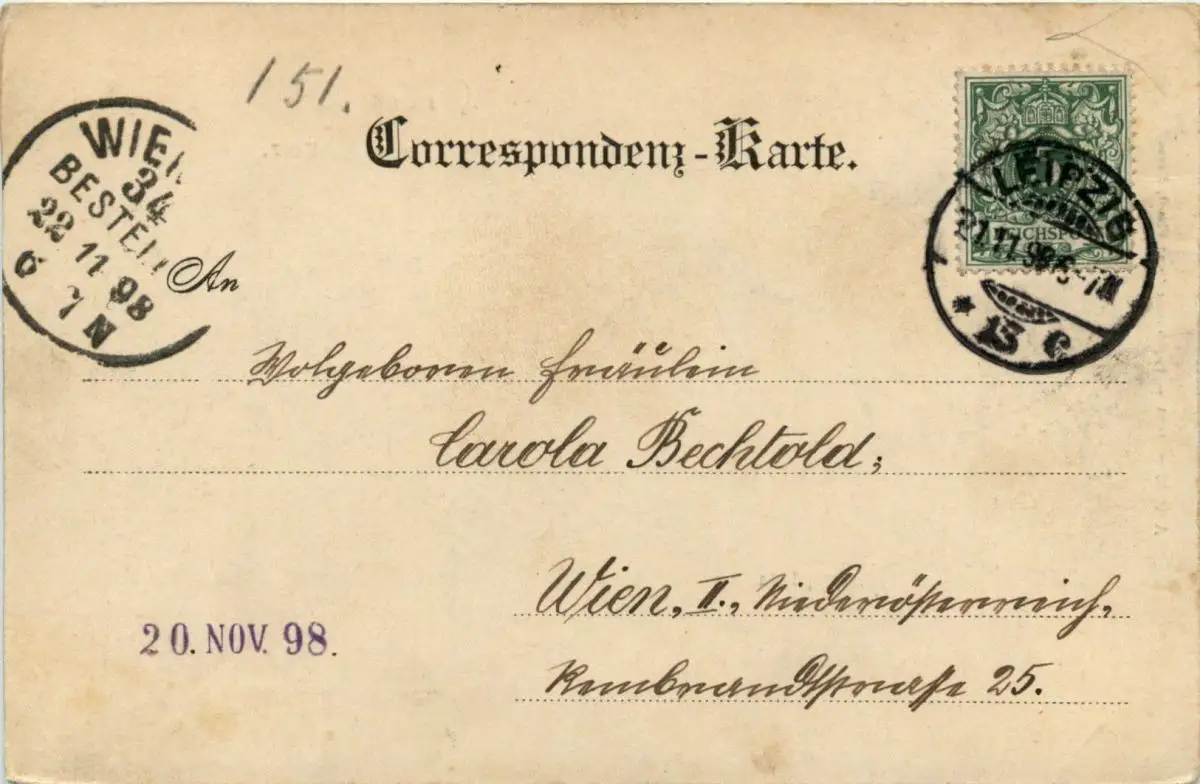 151.
Correspondenz-Karte.
WIEN
34
BESTELLT
22 11 98
6 7 N
LEIPZIG
REICHSPOST
21.11.98 6-7N
* 13 c
An
Wolgeboren Fräulein
Carola Bechtold,
Wien, II., Niederösterreich,
Rembrandtstrasse 25.
20. NOV. 98.